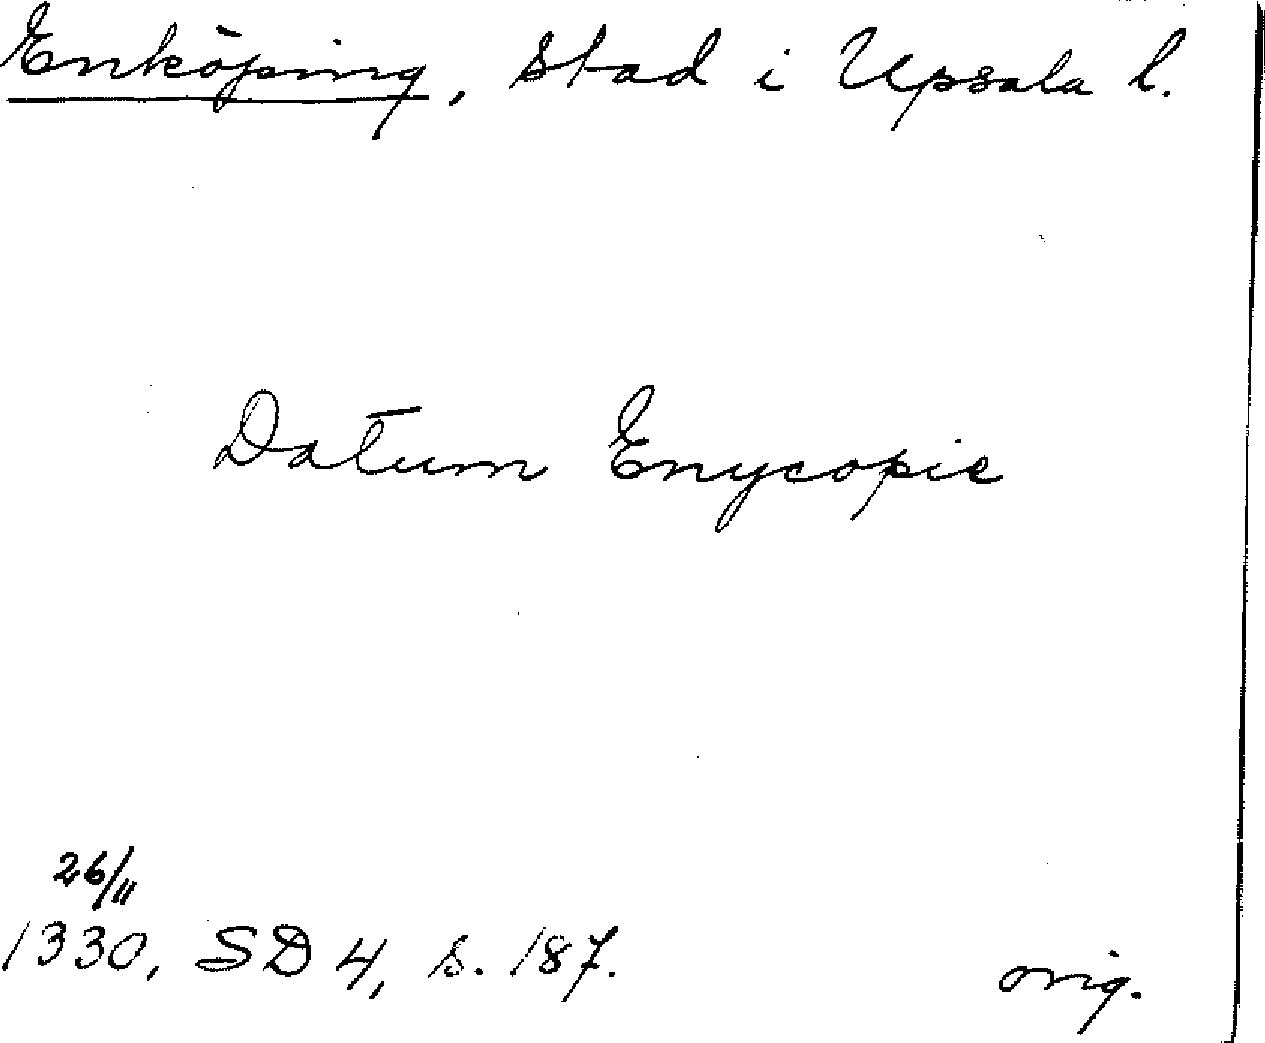 Enköping, stad i Upsala l.
Datum Enycopie
26/11
1330, SD 4, s. 187.
orig.